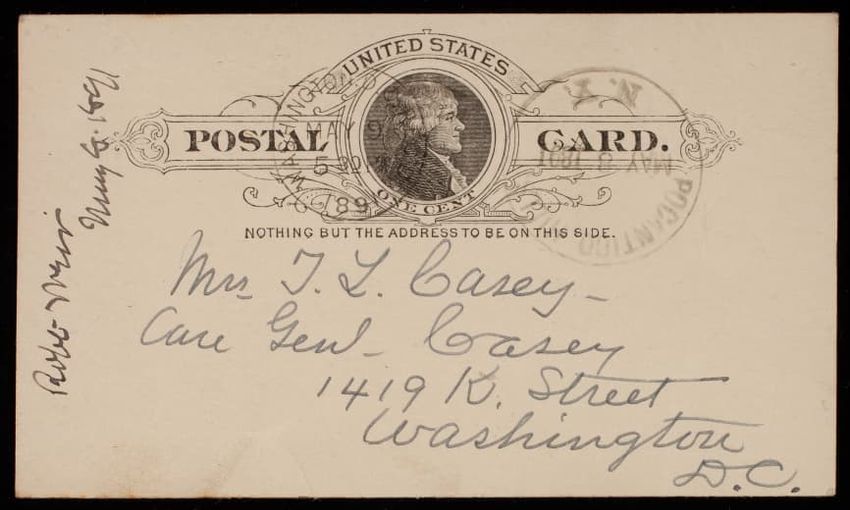 UNITED STATES
POSTAL CARD.
ONE CENT
NOTHING BUT THE ADDRESS TO BE ON THIS SIDE.
WASHINGTON, D.C.
MAY 9
5 30 PM
1891
N.Y.
MAY 8 1891
POCANTICO
Mrs T. L. Casey-
Care Genl- Casey
1419 K. Street
Washington
D.C.
Robt Weir
May 8. 1891